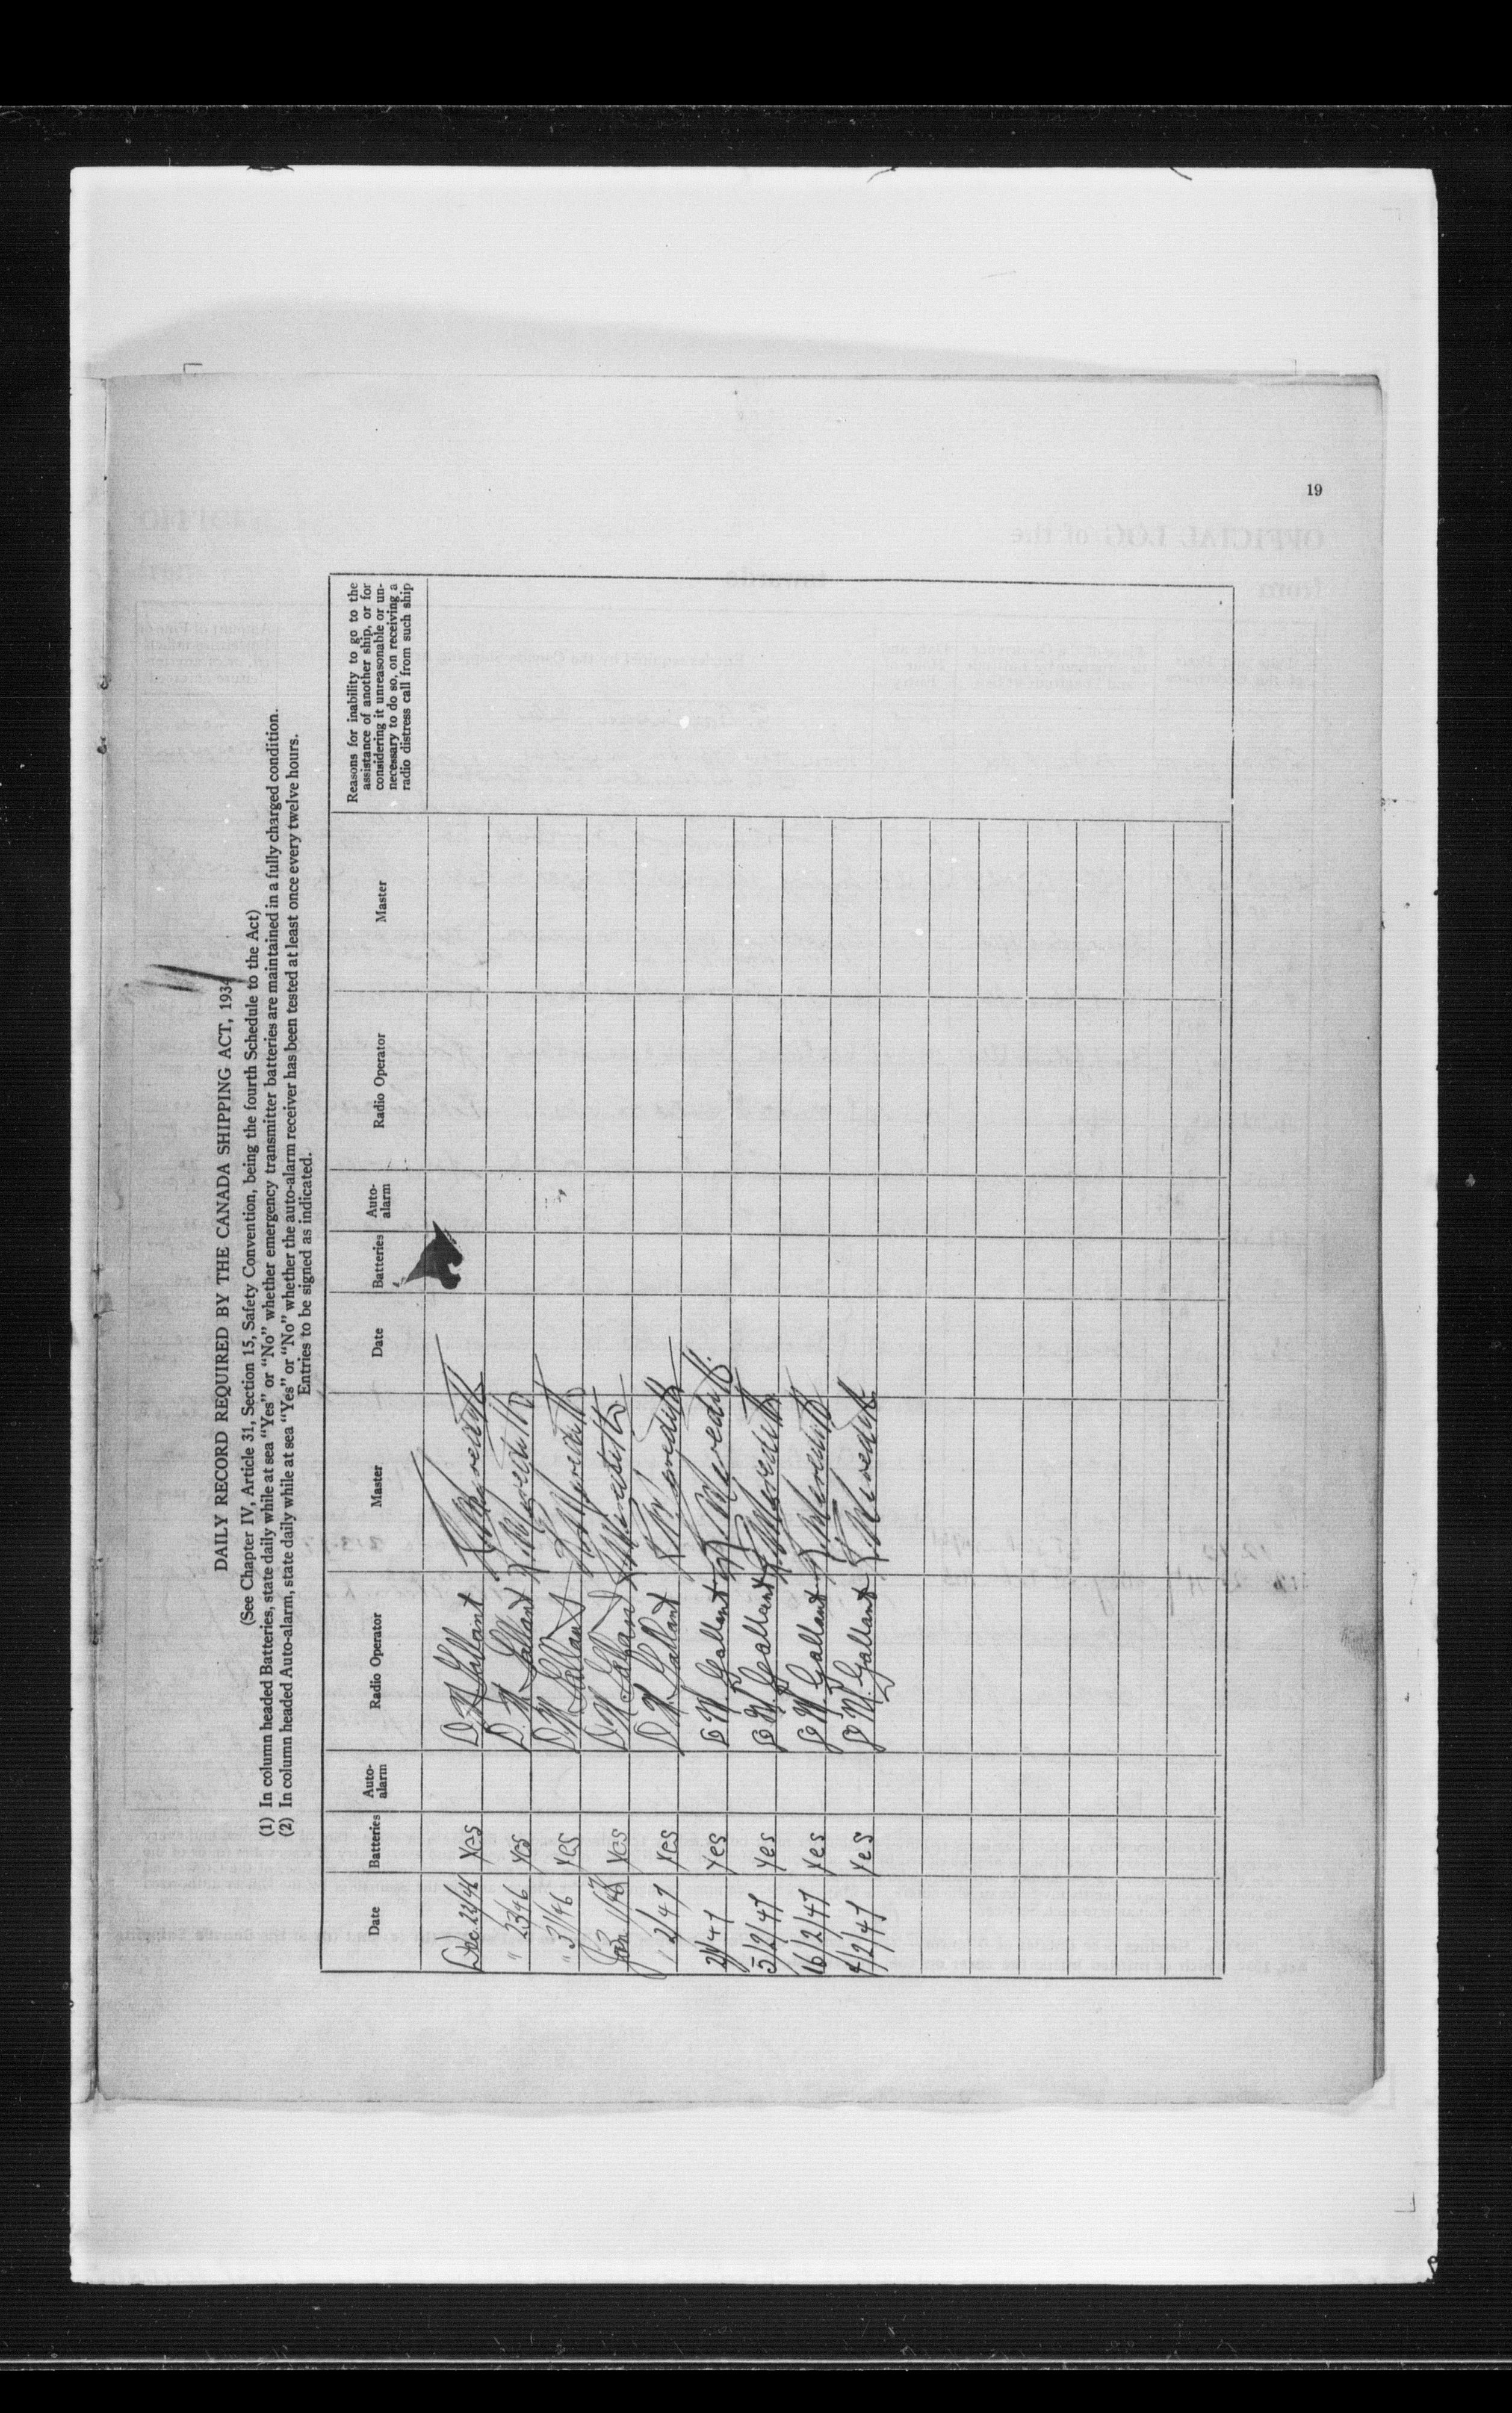 19
DAILY RECORD REQUIRED BY THE CANADA SHIPPING ACT, 1934
(See Chapter IV, Article 31, Section 15, Safety Convention, being the fourth Schedule to the Act)
(1) In column headed Batteries, state daily while at sea "Yes" or "No" whether emergency transmitter batteries are maintained in a fully charged condition.
(2) In column headed Auto-alarm, state daily while at sea "Yes" or "No" whether the auto-alarm receiver has been tested at least once every twelve hours.
Entries to be signed as indicated.
Date Batteries Auto-alarm Radio Operator Master Date Batteries Auto-alarm Radio Operator Master Reasons for inability to go to the assistance of another ship, or for considering it unreasonable or unnecessary to do so, on receiving a radio distress call from such ship
Dec. 22/46 yes D W Gallant R Meredith
" 23/46 yes D. W. Gallant R Meredith
" 31/46 yes D W Gallant R Meredith
Jan 1/47 yes D W Gallant R Meredith
" 2/47 yes D W. Gallant R Meredith
2/1/47 yes D W. Gallant R Meredith
5/2/47 yes D W. Gallant R Meredith
16/2/47 yes D W. Gallant R Meredith
/2/47 yes D W. Gallant R Meredith